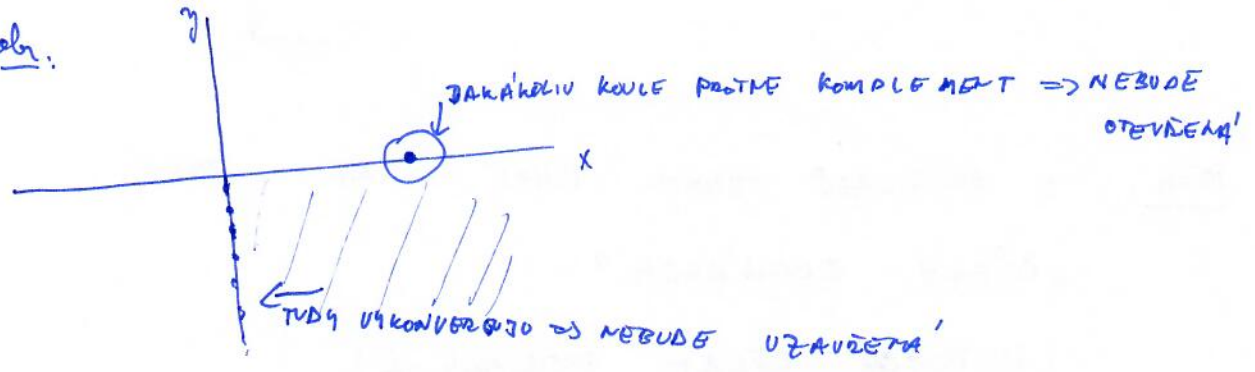 obr.
y
JAKÁKOLIV KOULE PROTNE KOMPLEMENT => NEBUDE
OTEVŘENÁ
x
TUDY VYKONVERGUJU => NEBUDE UZAVŘENÁ